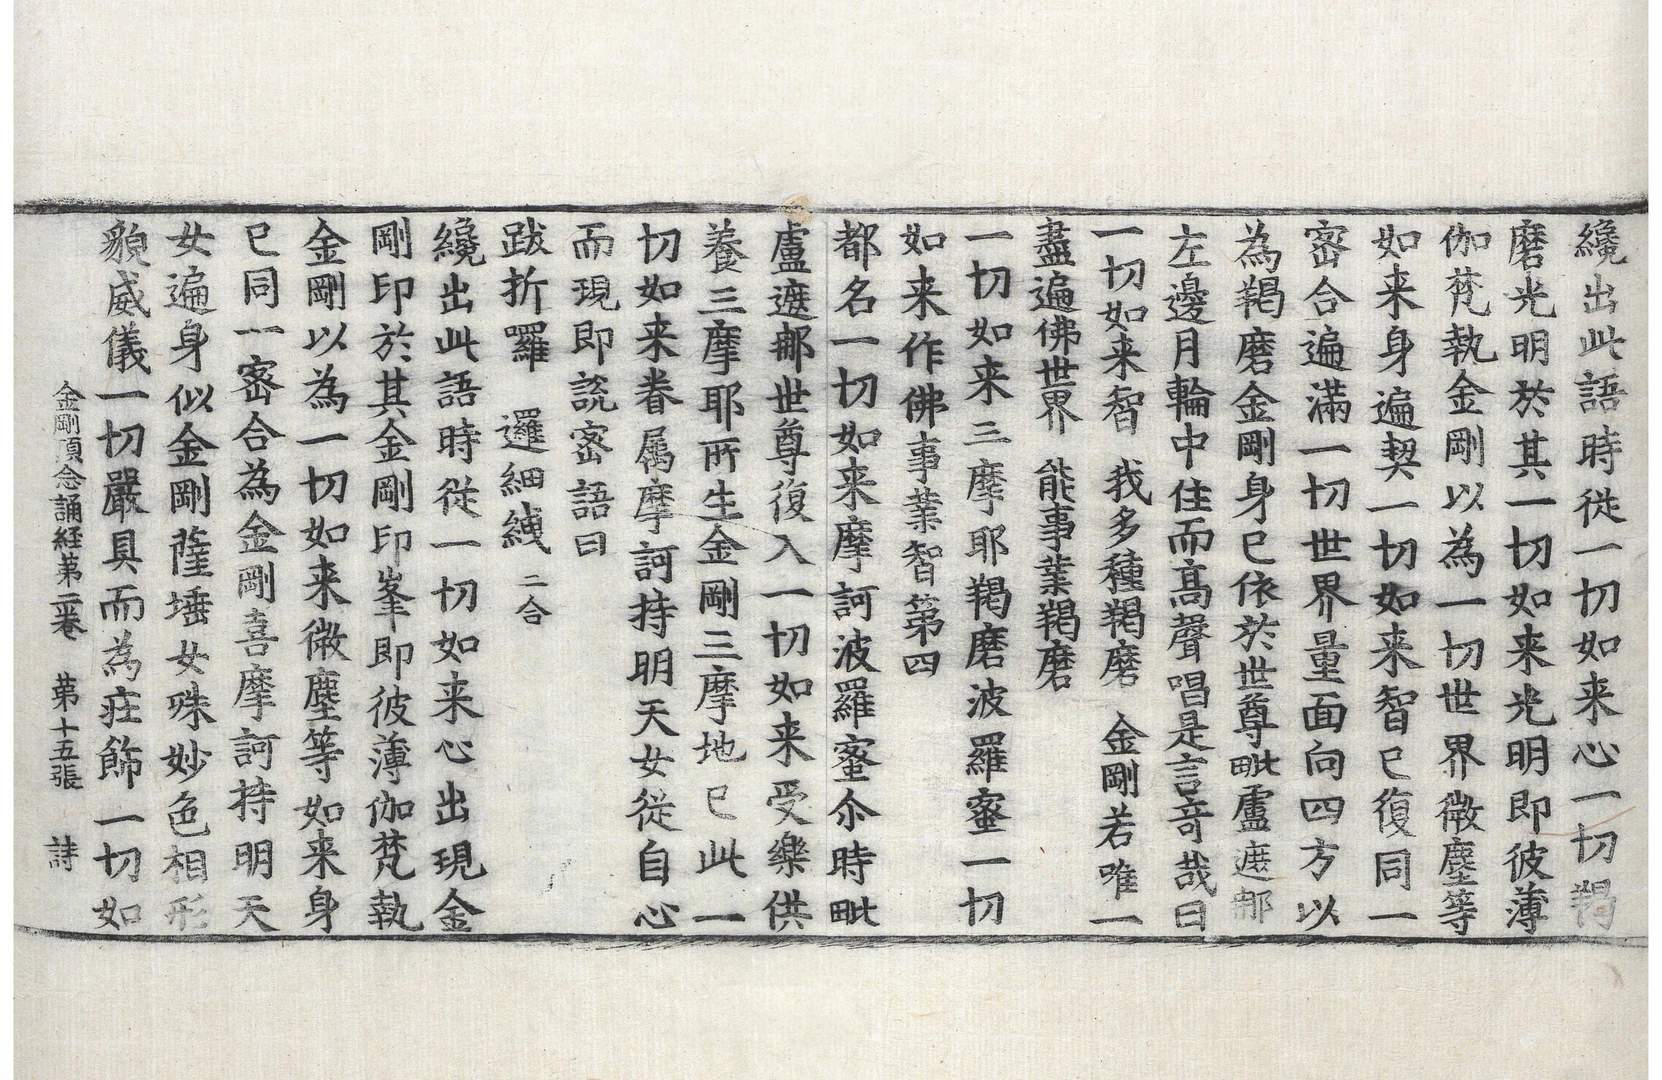 纔出此語時従一切如来心一切羯
磨光明於其一切如来光明即彼薄
伽梵執金剛以為一切世界微塵等
如来身遍契一切如来智已復同一
密合遍滿一切世界量面向四方以
為羯磨金剛身已依於世尊毗盧遮那
左邊月輪中住而髙聲唱是言竒哉曰
一切如来智　我多種羯磨　金剛若唯一
盡遍佛世界　能事業羯磨
一切如来三摩耶羯磨波羅蜜一切
如来作佛事業智第四
都名一切如来摩訶波羅蜜尒時毗
盧遮那世尊復入一切如来受樂供
養三摩耶所生金剛三摩地已此一
切如来眷属摩訶持明天女従自心
而現即説密語曰
跋折囉　邏細曳二合
纔出此語時従一切如来心出現金
剛印於其金剛印峯即彼薄伽梵執
金剛以為一切如来微塵等如来身
已同一密合為金剛喜摩訶持明天
女遍身似金剛薩埵女殊妙色相形
皃威儀一切嚴具而為莊飾一切如
金剛頂念誦経第二卷　第十五張　詩